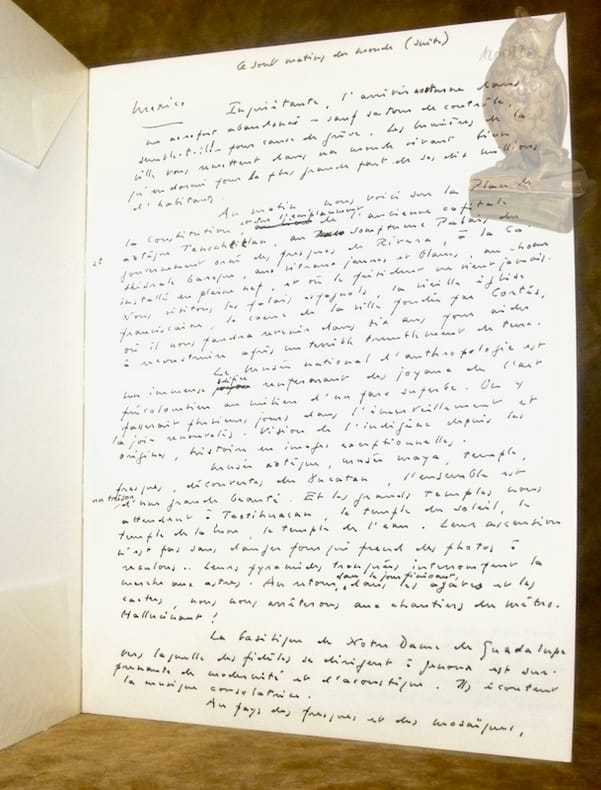 Ce sont matins du monde (suite)
Mexico Inquiétante, l'arrivée nocturne dans
un aéroport abandonné - sauf salons de contrôle,
semble-t-il - pour cause de grève. Les lumières de la
ville nous remettent dans un monde vivant bien
qu'endormi pour la plus grande part de ses dix millions
d'habitants.
Au matin nous voici sur la Place de
la Constitution, de l'ancienne capitale
et aztèque Tenochtitlan, au somptueux Palais du
gouvernement orné des fresques de Rivera, à la Ca-
thédrale baroque, aux vitraux jaunes et blancs, au chœur
installé en pleine nef, et où le président ne vient jamais.
Nous visitons les palais espagnols, la vieille église
franciscaine, le cœur de la ville fondée par Cortés,
où il nous faudra revenir dans dix ans pour aider
à reconstruire après un terrible tremblement de terre.
Le Musée national d'anthropologie est
un immense édifice renfermant des joyaux de l'art
précolombien au milieu d'un parc superbe. On y
passerait plusieurs jours dans l'émerveillement et
la joie renouvelés. Vision de l'indigène depuis les
origines, histoire en images exceptionnelles.
Musée aztèque, musée maya, temple,
fresques, découvertes du Yucatan, l'ensemble est
un trésor d'une grande beauté. Et les grands Temples nous
attendent à Teotihuacan, le temple du soleil, le
temple de la lune, le temple de l'eau. Leur ascension
n'est pas sans danger pour qui prend des photos à
reculons. Leurs pyramides tronquées interrompent la
marche aux astres. Au retour, dans le jour finissant, dans les agaves et les
cactus, nous nous arrêterons aux chantiers du métro.
Hallucinant !
La basilique de Notre Dame de Guadalupe
vers laquelle des fidèles se dirigent à genoux est sur-
prenante de modernité et d'acoustique. Ils écoutent
la musique consolatrice.
Au pays des fresques et des mosaïques,